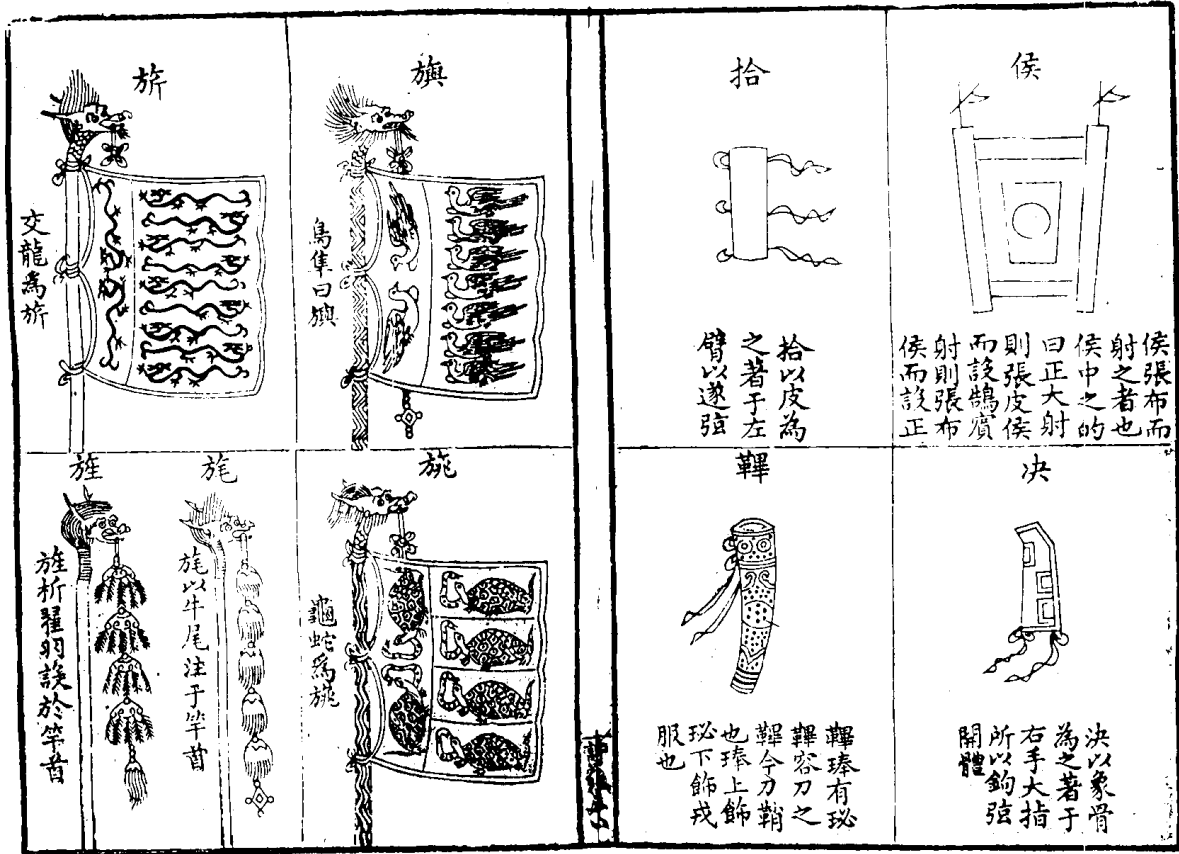 侯
侯張布而
射之者也
侯中之的
曰正大射
則張皮侯
而設鵠賓
射則張布
侯而設正
拾
拾以皮為
之著于左
臂以遂弦
决
决以象骨
為之著于
右手大指
所以鉤弦
開體
鞸
鞸琫有珌
鞸容刀之
鞸今刀鞘
也琫上飾
珌下飾戎
服也
旟
鳥隼曰旟
旂
交龍為旂
旐
龜蛇為旐
旄
旄以牛尾注于竿首
旌
旌析翟羽設於竿首